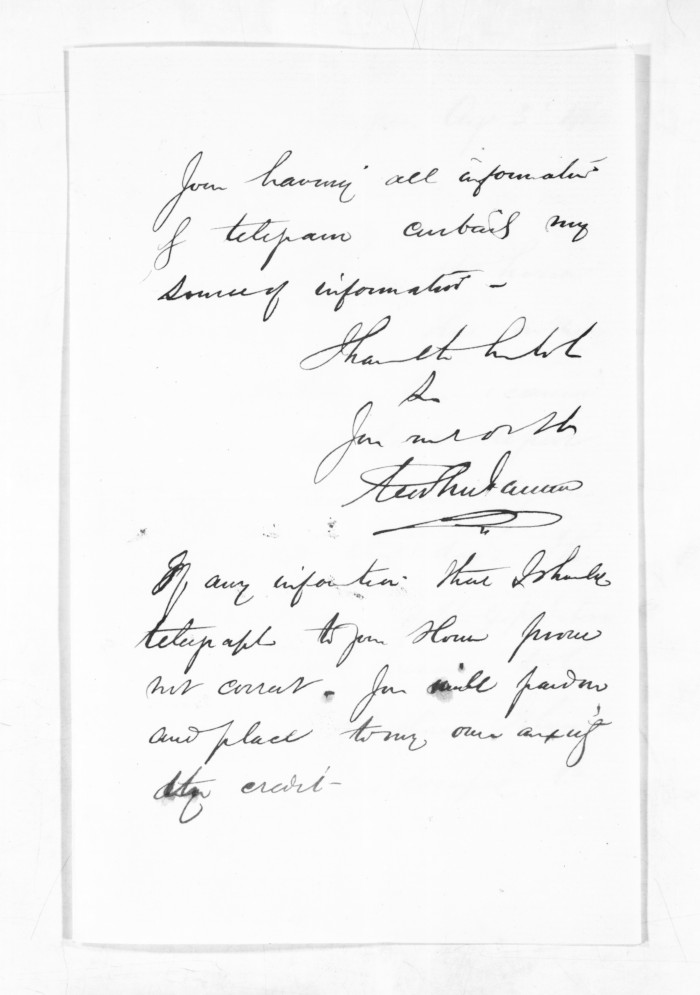 You having all information
of telegram curtails my
source of information -
I have the honor to be
Sir
Your most obt
If any information that I should
telegraph to your Honor prove
not correct. You will pardon
and place to my own anxiety
credit -